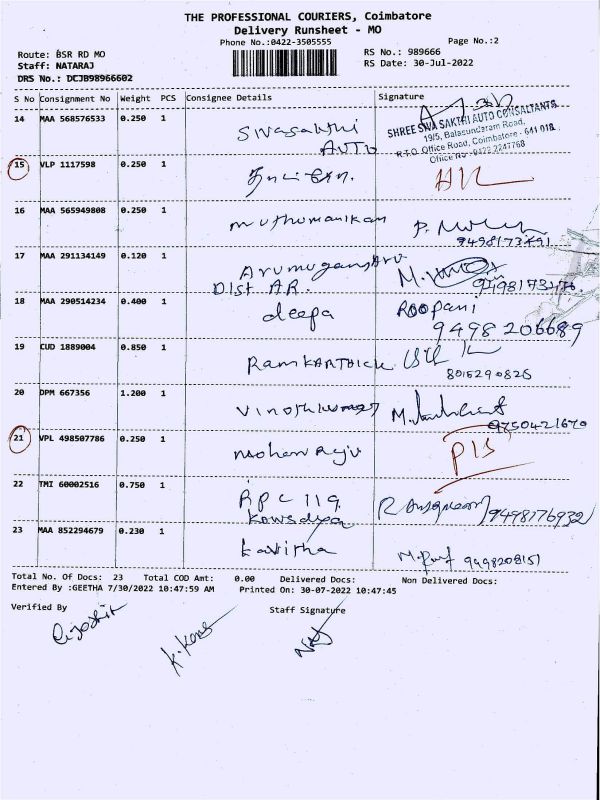 THE PROFESSIONAL COURIERS, Coimbatore
Delivery Runsheet - MO
Phone No.:0422-3505555
Page No.:2
Route: BSR RD MO
RS No.: 989666
Staff: NATARAJ
RS Date: 30-Jul-2022
DRS No.: DCJB98966602
S No Consignment No Weight PCS Consignee Details Signature
14 MAA 568576533 0.250 1 Sivasakthi AUTO
SHREE SIVA SAKTHI AUTO CONSULTANTS
19/5, Balasundaram Road,
R.T.O. Office Road, Coimbatore - 641 018.
Office No -0422 2247768
15 VLP 1117598 0.250 1
16 MAA 565949808 0.250 1 muthumanikam
9498173491
17 MAA 291134149 0.120 1
DIST AR.
18 MAA 290514234 0.400 1 deepa ROOPANI
9498206689
19 CUD 1889004 0.850 1 RAMKARTHICK
8015290825
20 DPM 667356 1.200 1 vinothkumar
9750421670
21 VPL 498507786 0.250 1 mohan raju
22 TMI 60002516 0.750 1 RPC 119
Kowsalya 9498176932
23 MAA 852294679 0.230 1 kavitha 9498208151
Total No. Of Docs: 23 Total COD Amt: 0.00 Delivered Docs: Non Delivered Docs:
Entered By :GEETHA 7/30/2022 10:47:59 AM Printed On: 30-07-2022 10:47:45
Verified By Staff Signature